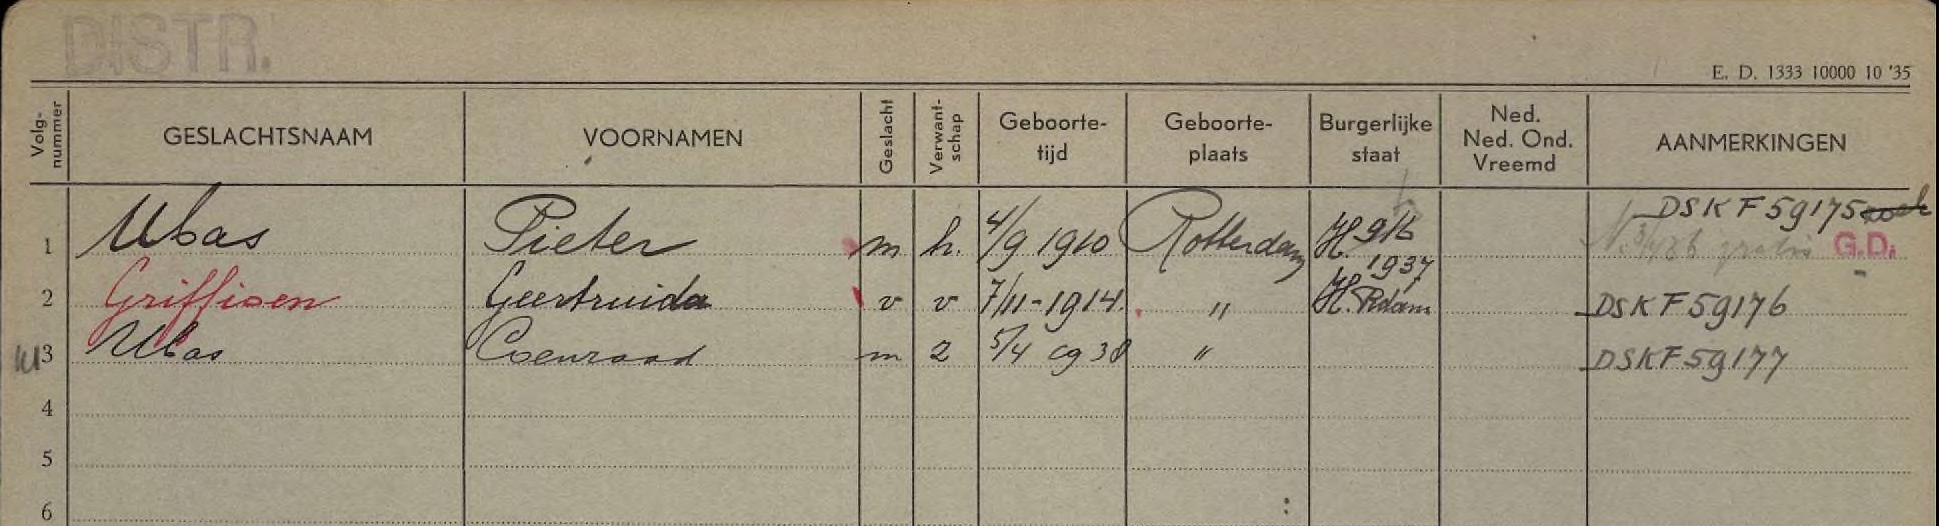 DISTR.
E. D. 1333 10000 10 '35
Volg-nummer GESLACHTSNAAM VOORNAMEN Geslacht Verwant-schap Geboorte-tijd Geboorte-plaats Burgerlijke staat Ned. Ned. Ond. Vreemd AANMERKINGEN
DSKF59175
1 Ubas Pieter m h. 4/9 1910 Rotterdam H. 9/6 1937 G.D.
2 Griffioen Geertruida v v 7/11-1914. " H. Rdam DSKF59176
3 Ubas Coenraad m z 5/4 1938 " DSKF59177
4
5
6